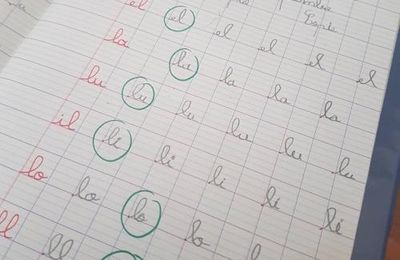 el el el el el el
la la la la la
lu lu lu lu lu lu
il li li li li li
lo lo lo lo
ll ll